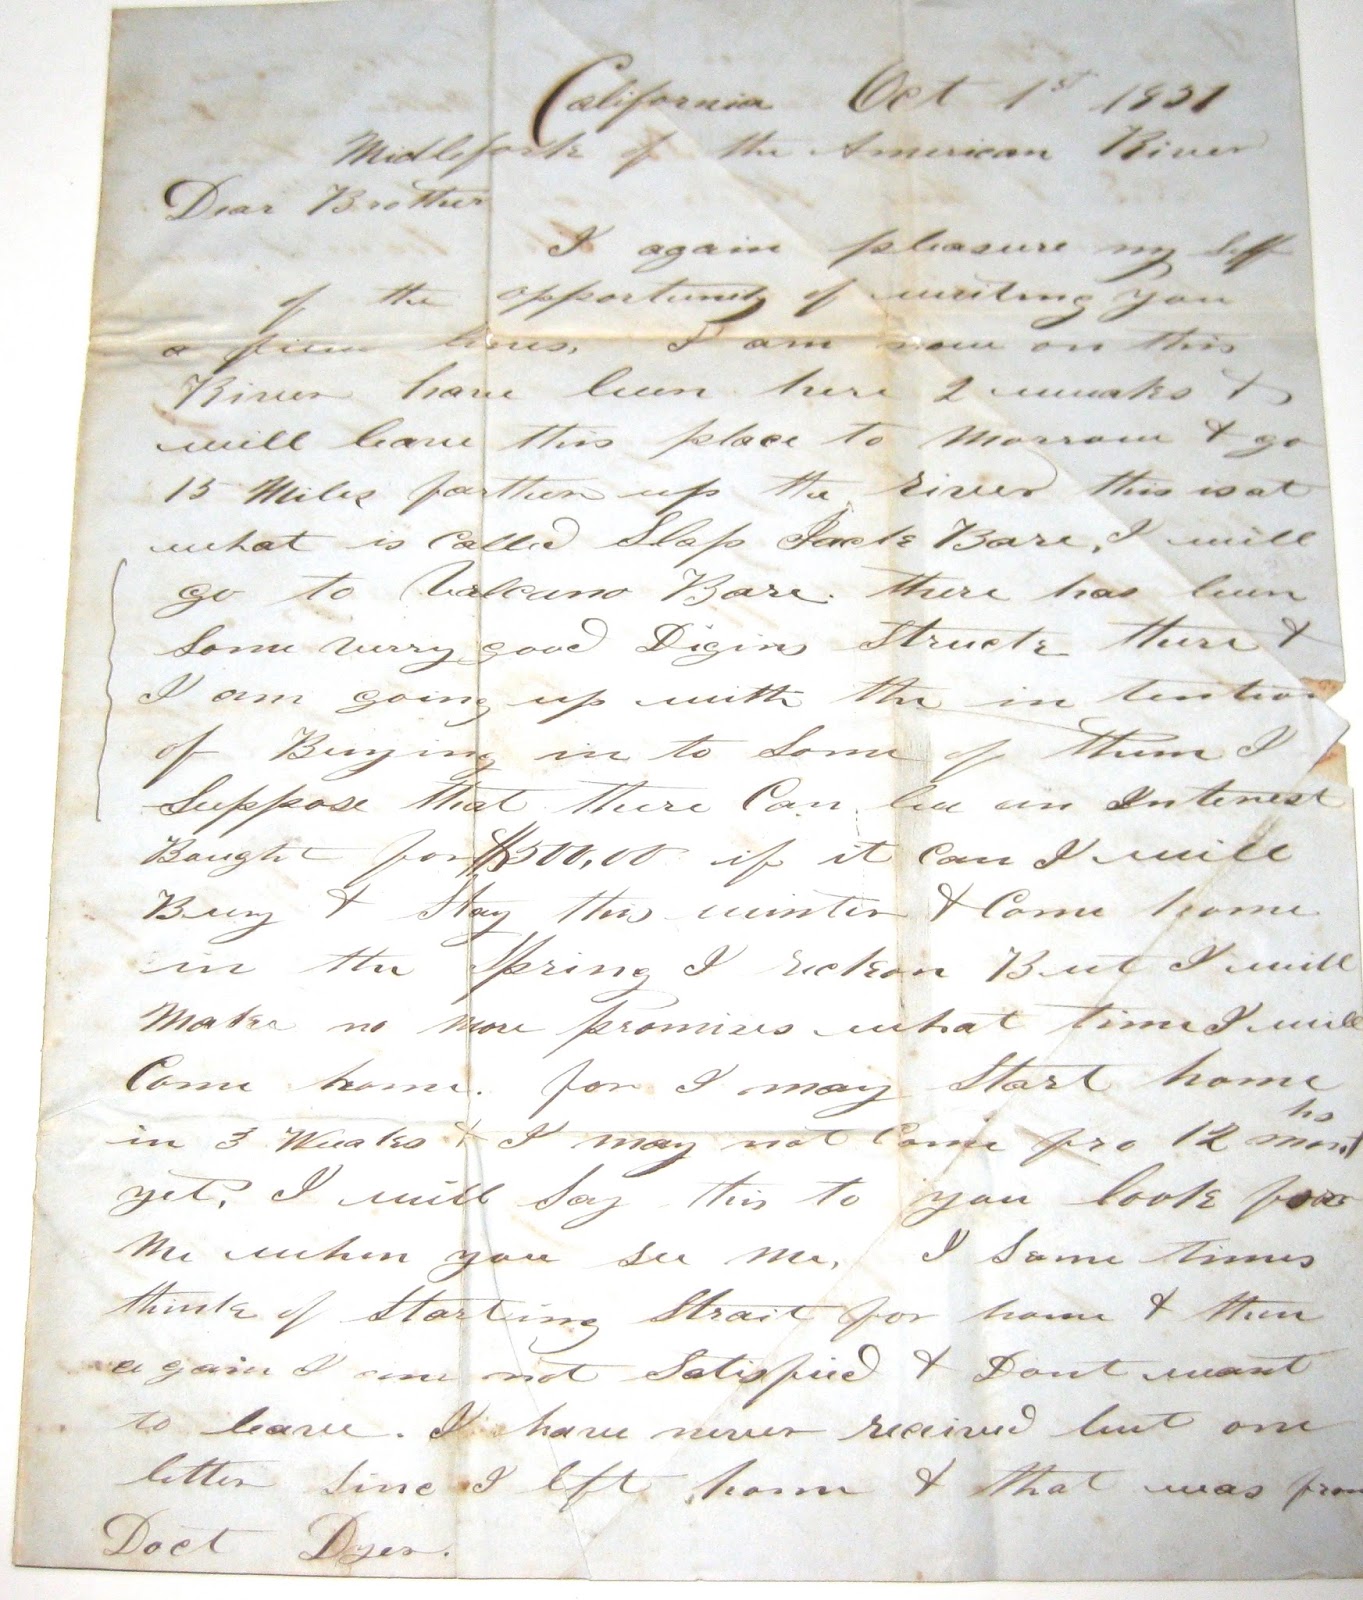 California Oct 1st 1851
Midlefork of the American River
Dear Brother
I again pleasure my self
of the opportunity of writing you
a fiew lines, I am now on this
River have been here 2 weaks &
will leave this place to morrow & go
15 Miles farther up the river this is at
what is Called Slap Jack Bare, I will
go to Valcano Bare. there has been
Some verry good Digins Struck there &
I am going up with the in tention
of Buying in to Some of them I
Suppose that there Can be an Interest
Bought for $500,00 if it can I will
Buy & Stay this winter & Come home
in the Spring I reckon But I will
Make no more promises what time I will
Come home. for I may Start home
in 3 Weaks & I may not Come fro 12 months
yet, I will Say this to you look for
Me when you see me, I Some times
think of Starting Strait for home & then
again I am not Satisfied & Dont want
to leave. I have never received but one
letter Sine I left home & that was from
Doct Dyer.